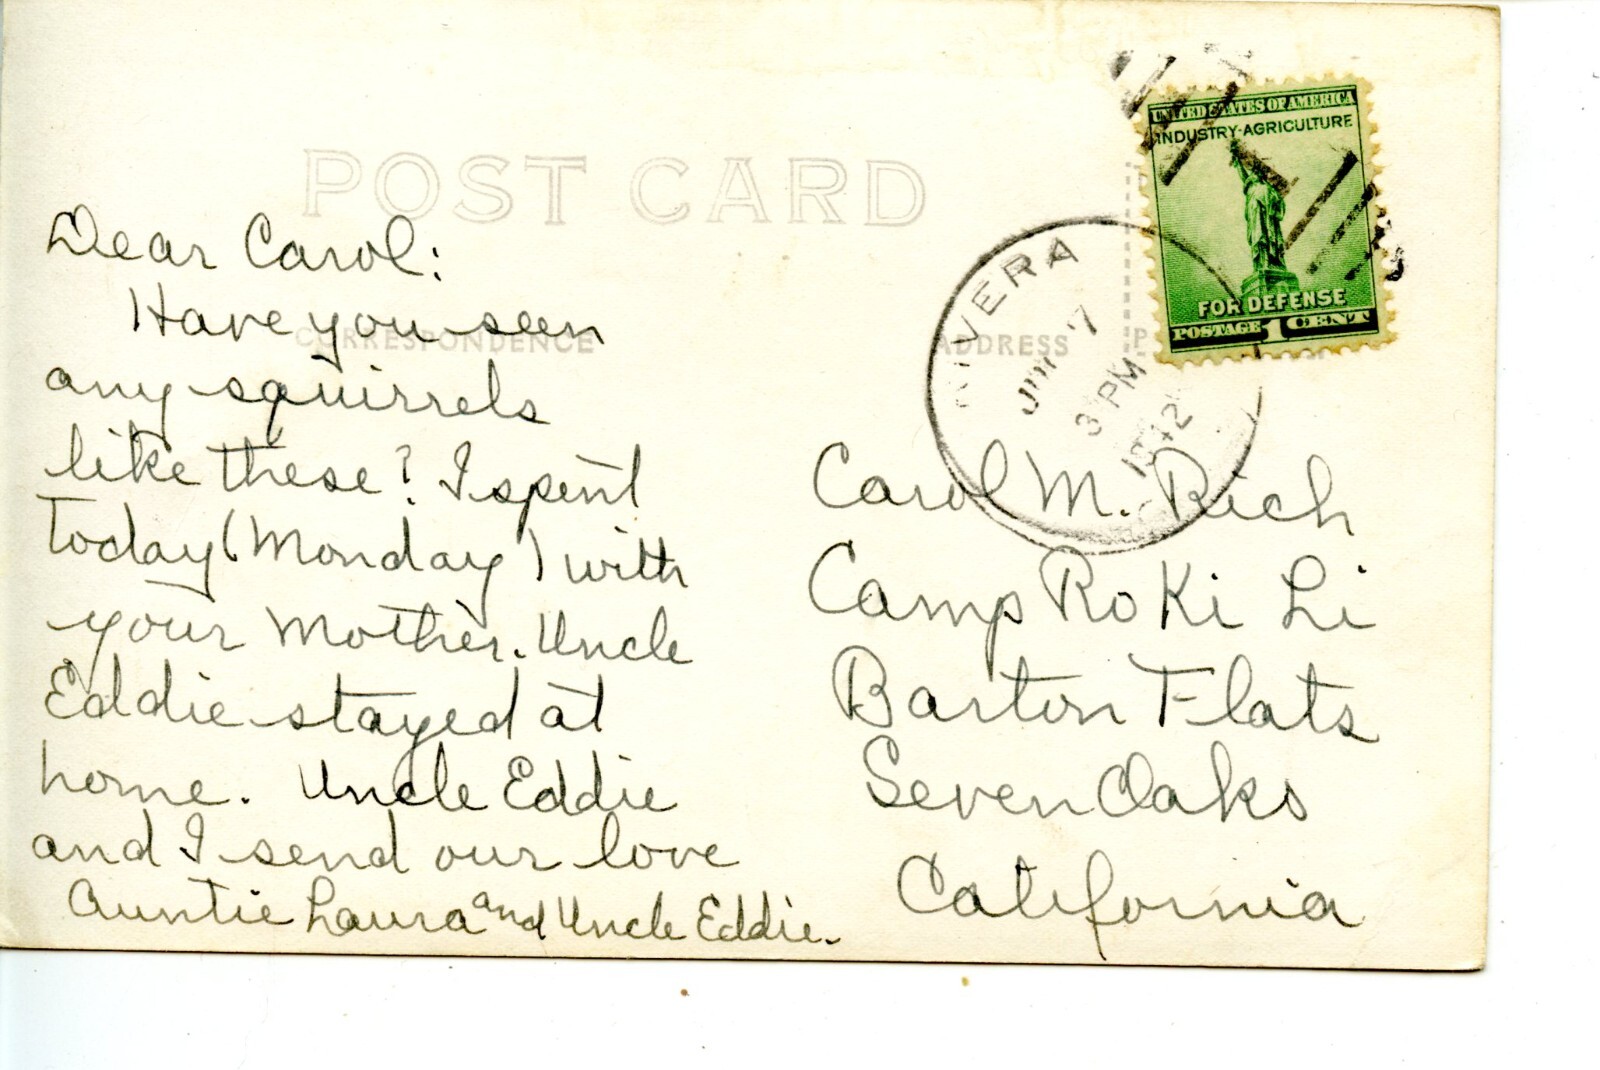 POST CARD
UNITED STATES OF AMERICA
INDUSTRY-AGRICULTURE
FOR DEFENSE
POSTAGE 1 CENT
RIVERA
7
3 PM
1942
CORRESPONDENCE
ADDRESS
Dear Carol:
Have you seen
any squirrels
like these? I spent
today (Monday) with
your Mother. Uncle
Eddie stayed at
home. Uncle Eddie
and I send our love
Auntie Laura and Uncle Eddie.
Carol M. Rich
Camp Ro Ki Li
Barton Flats
Seven Oaks
California